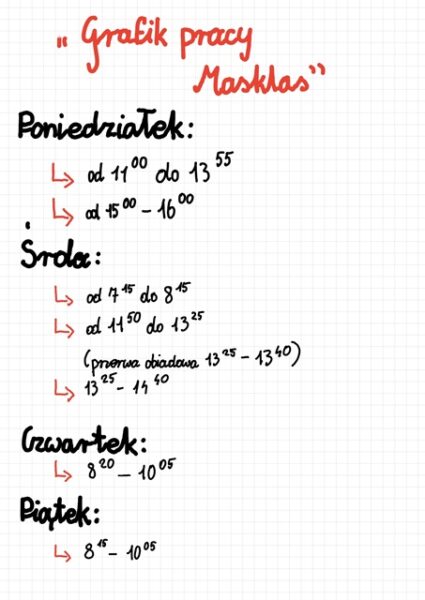 „Grafik pracy
Masklas"
Poniedziałek:
od 11⁰⁰ do 13⁵⁵
od 15⁰⁰ - 16⁰⁰
Środa:
od 7¹⁵ do 8¹⁵
od 11⁵⁰ do 13²⁵
(przerwa obiadowa 13²⁵ - 13⁴⁰)
13²⁵ - 14⁴⁰
Czwartek:
8²⁰ - 10⁰⁵
Piątek:
8¹⁵ - 10⁰⁵